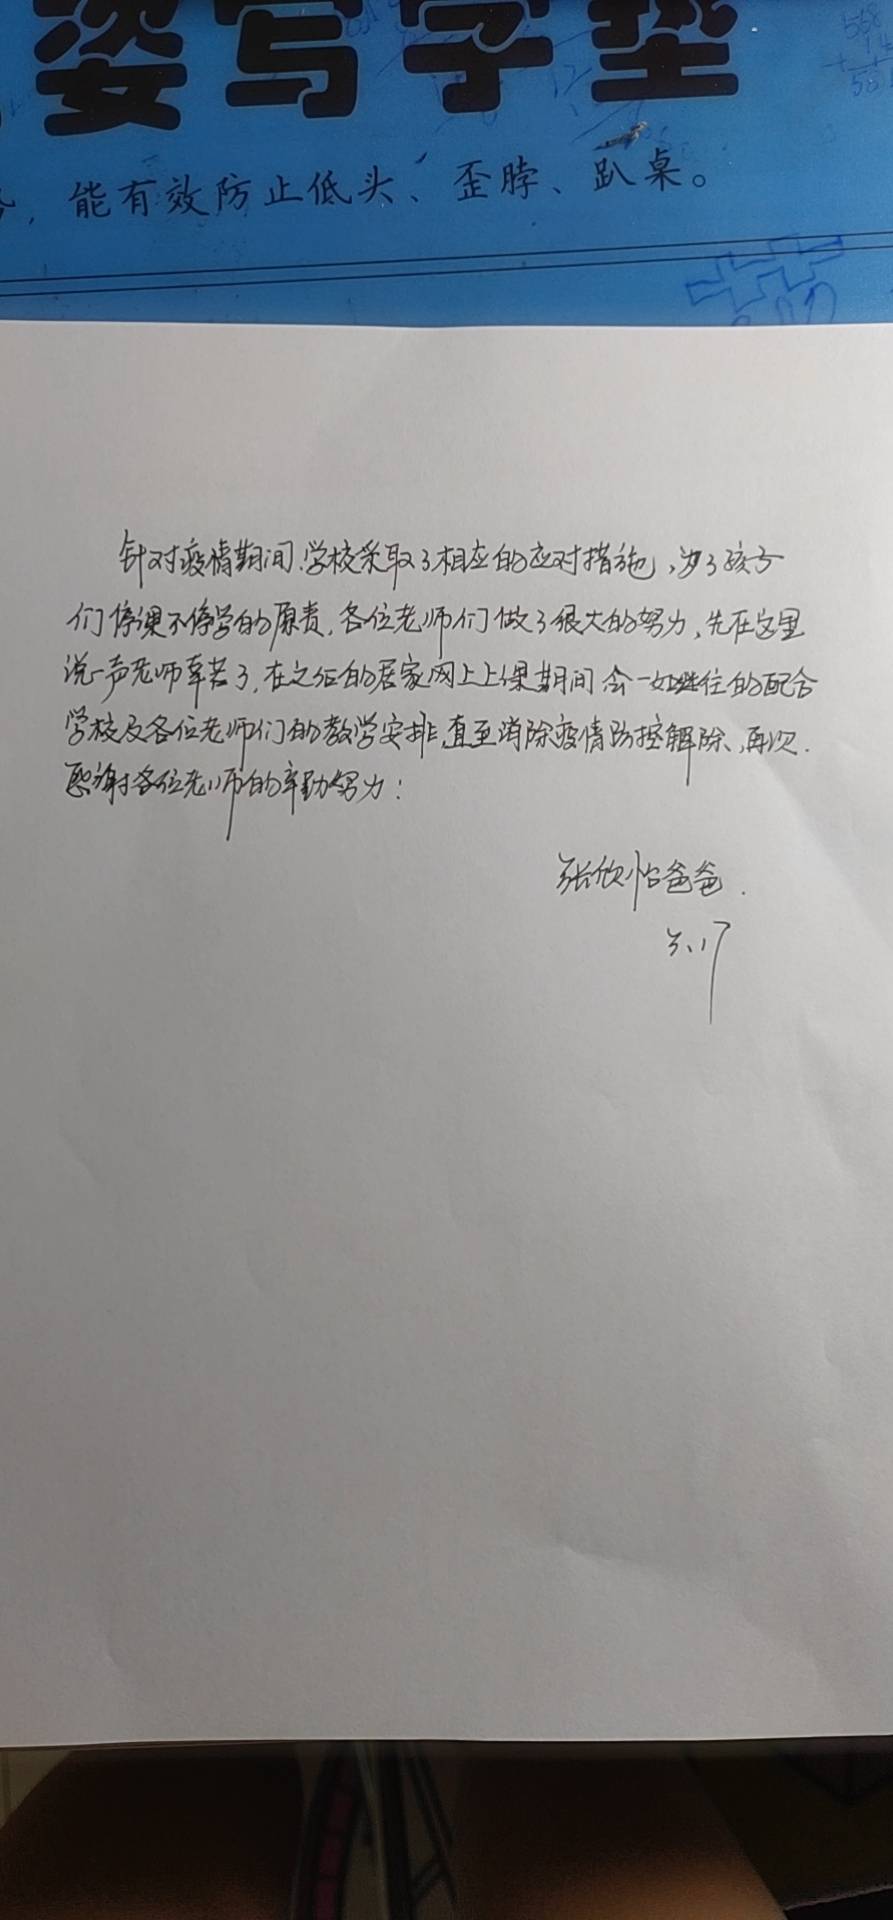 姿写字垫
，能有效防止低头、歪脖、趴桌。
568
针对疫情期间、学校采取了相应的应对措施，为了孩子
们停课不停学的原责，各位老师们做了很大的努力，先在这里
说一声老师辛苦了，在之后的居家网上上课期间会一如继往的配合
学校及各位老师们的教学安排，直至消除疫情防控解除、再次.
感谢各位老师的辛勤努力：
张欣怡爸爸.
3.17